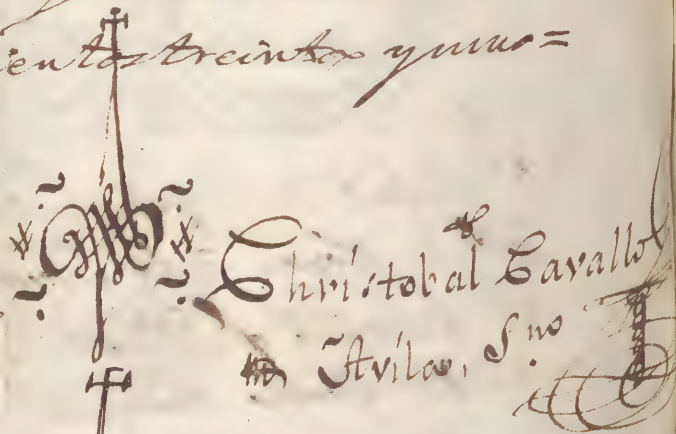 ientos treinta y uno =
Christobal Cavallo
Avila, S.no